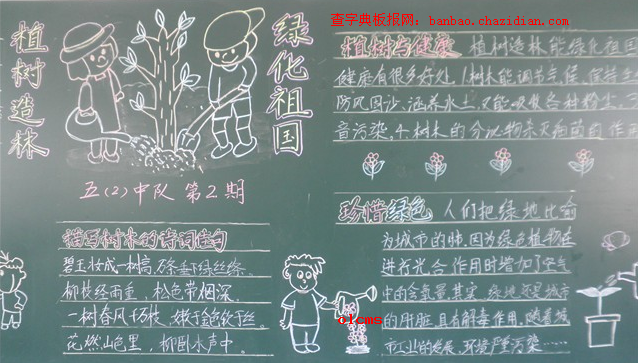 查字典板报网：banbao.chazidian.com
植树造林
绿化祖国
五(2)中队 第2期
描写树木的诗词佳句
碧玉妆成一树高，万条垂下绿丝绦。
柳枝经雨重，松色带烟深。
一树春风千万枝，嫩于金色软于丝。
花燃山色里，柳卧水声中。
植树与健康 植树造林能绿化祖国
健康有很多好处。1树木能调节气候，保持生
防风固沙，涵养水土，又能吸收各种粉尘，
音污染，4树木的分泌物杀灭病菌的作
珍惜绿色 人们把绿地比喻
为城市的肺，因为绿色植物在
进行光合作用时增加了空气
中的含氧量。其实，绿地还是城市
的肝脏，具有解毒作用，随着城
市工业的发展，环境严重污染……
olcms